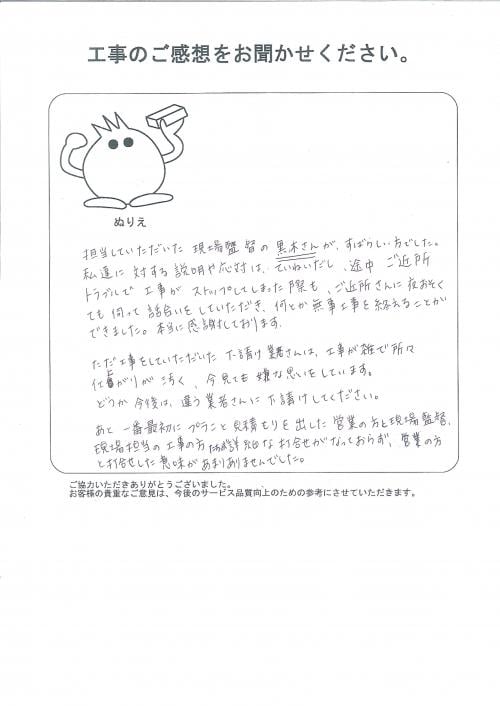 工事のご感想をお聞かせください。
ぬりえ
担当していただいた 現場監督の 黒木さんが、すばらしい方でした。
私達に 対する 説明や応対は、ていねいだし、途中 ご近所
トラブルで 工事が ストップしてしまった際も、ご近所さんに 夜おそく
ても 伺って 話合いをしていただき、何とか無事工事を終えることが
できました。本当に感謝しております。
ただ工事をしていただいた 下請け業者さんは、工事が雑で所々
仕上がりが 汚く、今見ても 嫌な思いをしています。
どうか 今後は、違う 業者さんに 下請けしてください。
あと 一番最初に プランと見積もりを出した 営業の方と現場監督、
現場担当の工事の方 詳細な打合せがなっておらず、営業の方
と打合せした意味が あまりありませんでした。
ご協力いただきありがとうございました。
お客様の貴重なご意見は、今後のサービス品質向上のための参考にさせていただきます。